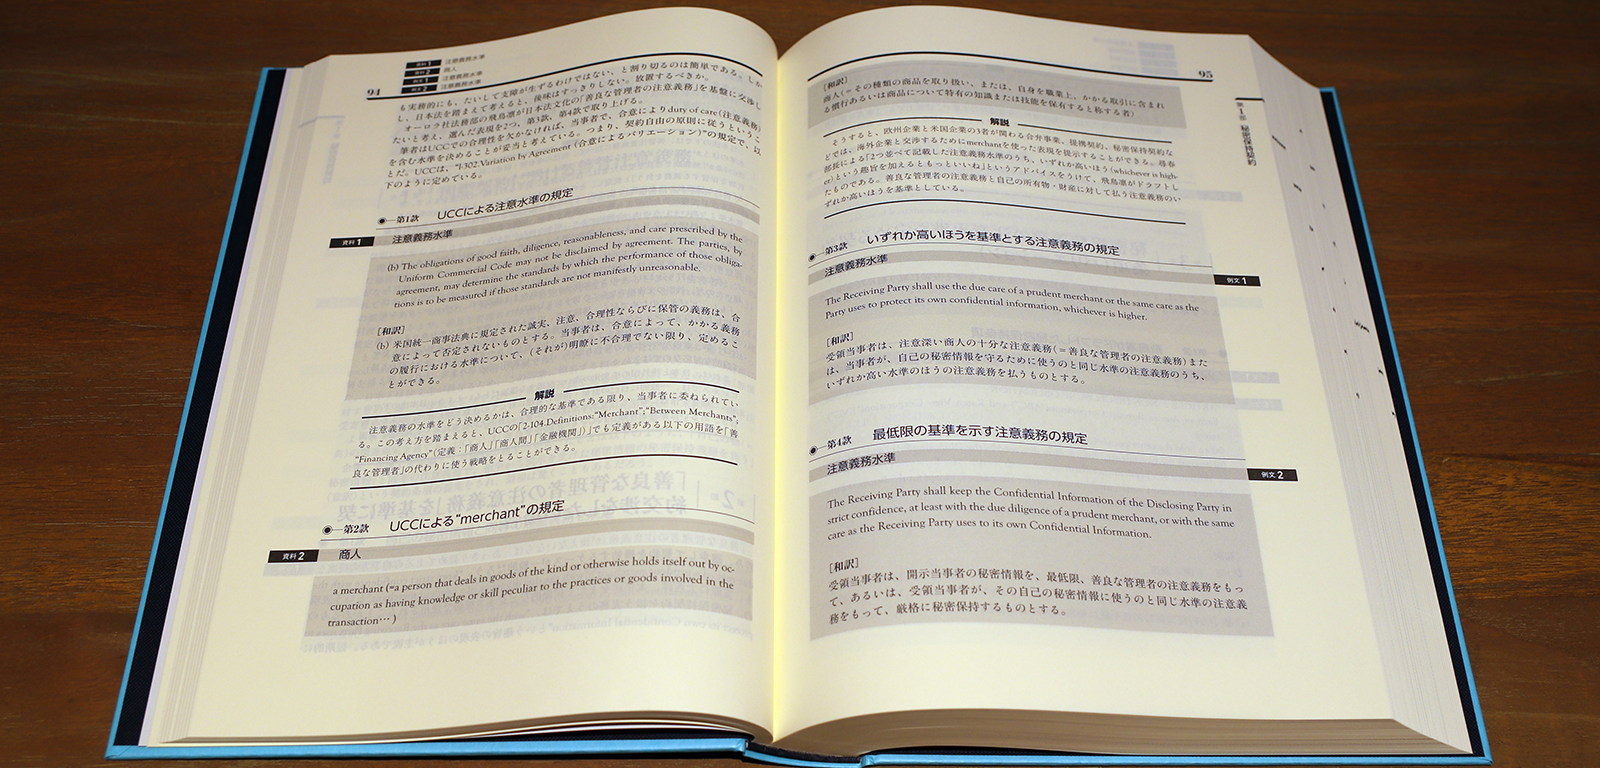 94
資料1 注意義務水準
資料2 商人
例文1 注意義務水準
例文2 注意義務水準
も実務的にも、たいして支障が生ずるわけではない、と割り切るのは簡単である。しか
し、日本法を踏まえて考えると、後味はすっきりしない。放置するべきか。
オーロラ社法務部の飛鳥凛が日本法文化の「善良な管理者の注意義務」を基盤に交渉し
たいと考え、選んだ表現を2つ、第3款、第4款で取り上げる。
筆者はUCCでの合理性を欠かなければ、当事者で、合意によりduty of care(注意義務)
を含む水準を決めることが妥当と考えている。つまり、契約自由の原則に従うというこ
とだ。UCCは、"1-302.Variation by Agreement (合意によるバリエーション)"の規定で、以
下のように定めている。
第1款 UCCによる注意水準の規定
資料1 注意義務水準
(b) The obligations of good faith, diligence, reasonableness, and care prescribed by the
Uniform Commercial Code may not be disclaimed by agreement. The parties, by
agreement, may determine the standards by which the performance of those obliga-
tions is to be measured if those standards are not manifestly unreasonable.
[和訳]
(b) 米国統一商事法典に規定された誠実、注意、合理性ならびに保管の義務は、合
意によって否定されないものとする。当事者は、合意によって、かかる義務
の履行における水準について、(それが)明瞭に不合理でない限り、定めるこ
とができる。
解説
注意義務の水準をどう決めるかは、合理的な基準である限り、当事者に委ねられてい
る。この考え方を踏まえると、UCCの「2-104.Definitions:"Merchant";"Between Merchants";
"Financing Agency"(定義：「商人」「商人間」「金融機関」)」でも定義がある以下の用語を「善
良な管理者」の代わりに使う戦略をとることができる。
第2款 UCCによる"merchant"の規定
資料2 商人
a merchant (=a person that deals in goods of the kind or otherwise holds itself out by oc-
cupation as having knowledge or skill peculiar to the practices or goods involved in the
transaction… )
95
第1部 秘密保持契約
[和訳]
商人(＝その種類の商品を取り扱い、または、自身を職業上、かかる取引に含まれ
る慣行あるいは商品について特有の知識または技能を保有すると称する者)
解説
そうすると、欧州企業と米国企業の3者が関わる合弁事業、提携契約、秘密保持契約な
どでは、海外企業と交渉するためにmerchantを使った表現を提示することができる。尋春
部長による「2つ並べて記載した注意義務水準のうち、いずれか高いほう(whichever is high-
er)という趣旨を加えるともっといいね」というアドバイスをうけて、飛鳥凛がドラフトし
たものである。善良な管理者の注意義務と自己の所有物・財産に対して払う注意義務のい
ずれか高いほうを基準としている。
第3款 いずれか高いほうを基準とする注意義務の規定
注意義務水準 例文1
The Receiving Party shall use the due care of a prudent merchant or the same care as the
Party uses to protect its own confidential information, whichever is higher.
[和訳]
受領当事者は、注意深い商人の十分な注意義務(＝善良な管理者の注意義務)また
は、当事者が、自己の秘密情報を守るために使うのと同じ水準の注意義務のうち、
いずれか高い水準のほうの注意義務を払うものとする。
第4款 最低限の基準を示す注意義務の規定
注意義務水準 例文2
The Receiving Party shall keep the Confidential Information of the Disclosing Party in
strict confidence, at least with the due diligence of a prudent merchant, or with the same
care as the Receiving Party uses to its own Confidential Information.
[和訳]
受領当事者は、開示当事者の秘密情報を、最低限、善良な管理者の注意義務をもっ
て、あるいは、受領当事者が、その自己の秘密情報に使うのと同じ水準の注意義
務をもって、厳格に秘密保持するものとする。